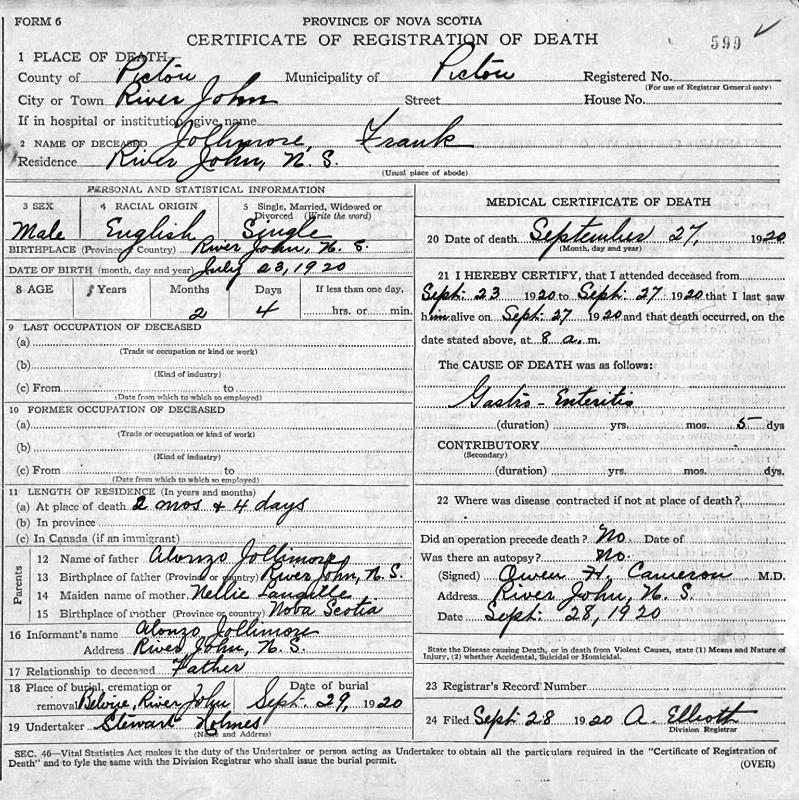 FORM 6
PROVINCE OF NOVA SCOTIA
CERTIFICATE OF REGISTRATION OF DEATH
599
1 PLACE OF DEATH
County of Pictou Municipality of Pictou Registered No.
(For use of Registrar General only)
City or Town River John Street House No.
If in hospital or institution, give name
2 NAME OF DECEASED Jollimore, Frank
Residence River John, N. S.
(Usual place of abode)
PERSONAL AND STATISTICAL INFORMATION
3 SEX 4 RACIAL ORIGIN 5 Single, Married, Widowed or Divorced (Write the word)
Male English Single
BIRTHPLACE (Province or Country) River John, N. S.
DATE OF BIRTH (month, day and year) July 23, 1920
8 AGE Years Months Days If less than one day,
2 4 hrs. or min.
9 LAST OCCUPATION OF DECEASED
(a)
(Trade or occupation or kind or work)
(b)
(Kind of industry)
(c) From to
(Date from which to which so employed)
10 FORMER OCCUPATION OF DECEASED
(a)
(Trade or occupation or kind of work)
(b)
(Kind of industry)
(c) From to
(Date from which to which so employed)
11 LENGTH OF RESIDENCE (In years and months)
(a) At place of death 2 mos & 4 days
(b) In province
(c) In Canada (if an immigrant)
Parents
12 Name of father Alonzo Jollimore
13 Birthplace of father (Province or country) River John, N. S.
14 Maiden name of mother Nellie Langille
15 Birthplace of mother (Province or country) Nova Scotia
16 Informant's name Alonzo Jollimore
Address River John, N. S.
17 Relationship to deceased Father
18 Place of burial, cremation or removal River John Date of burial Sept. 29, 1920
19 Undertaker Stewart Holmes
(Name and Address)
MEDICAL CERTIFICATE OF DEATH
20 Date of death September 27, 1920
(Month, day and year)
21 I HEREBY CERTIFY, that I attended deceased from
Sept. 23 1920 to Sept. 27 1920 that I last saw
him alive on Sept. 27 1920 and that death occurred, on the
date stated above, at 8 a. m.
The CAUSE OF DEATH was as follows:
Gastro-Enteritis
(duration) yrs. mos. 5 dys
CONTRIBUTORY
(Secondary)
(duration) yrs. mos. dys.
22 Where was disease contracted if not at place of death?
Did an operation precede death? No Date of
Was there an autopsy? No
(Signed) Owen H. Cameron M.D.
Address River John, N. S.
Date Sept. 28, 1920
State the Disease causing Death, or in death from Violent Causes, state (1) Means and Nature of
Injury, (2) whether Accidental, Suicidal or Homicidal.
23 Registrar's Record Number
24 Filed Sept 28 1920 A. Elliott
Division Registrar
SEC. 46—Vital Statistics Act makes it the duty of the Undertaker or person acting as Undertaker to obtain all the particulars required in the "Certificate of Registration of
Death" and to fyle the same with the Division Registrar who shall issue the burial permit.
(OVER)